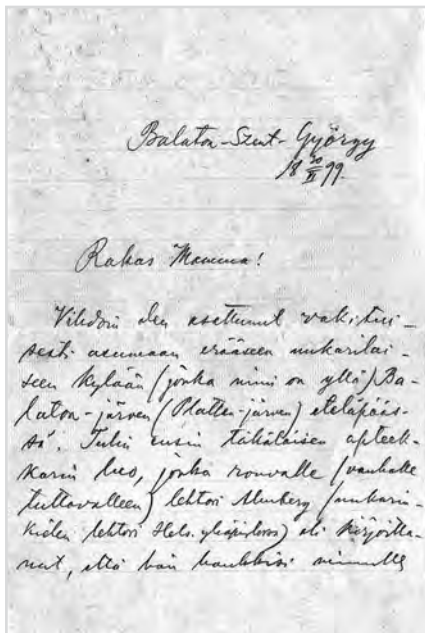 Balaton-Szent-György
18 20/II 99.
Rakas Mamma!
Vihdoin olen asettunut vakitui-
sesti asumaan erääseen unkarilai-
seen kylään (jonka nimi on yllä) Ba-
laton-järven (Platten-järven) eteläpääs-
sä. Tulin ensin täkäläisen apteek-
karin luo, jonka rouvalle (vanhalle
tuttavalleen) lehtori Almberg (unkarin-
kielen lehtori Hels. yliopistossa) oli kirjoitta-
nut, että hän hankkisi minulle